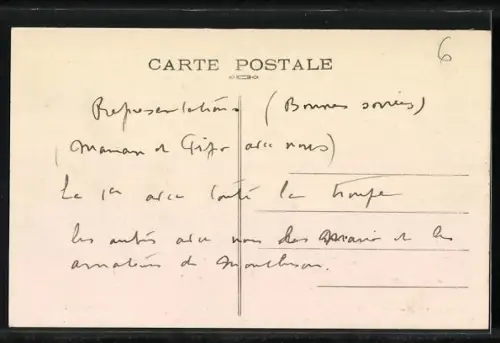 6
CARTE POSTALE
Representations (Bonnes soirées)
(Maman et avec nous)
La 1re avec toute la troupe
les autres avec nous et les
amateurs de